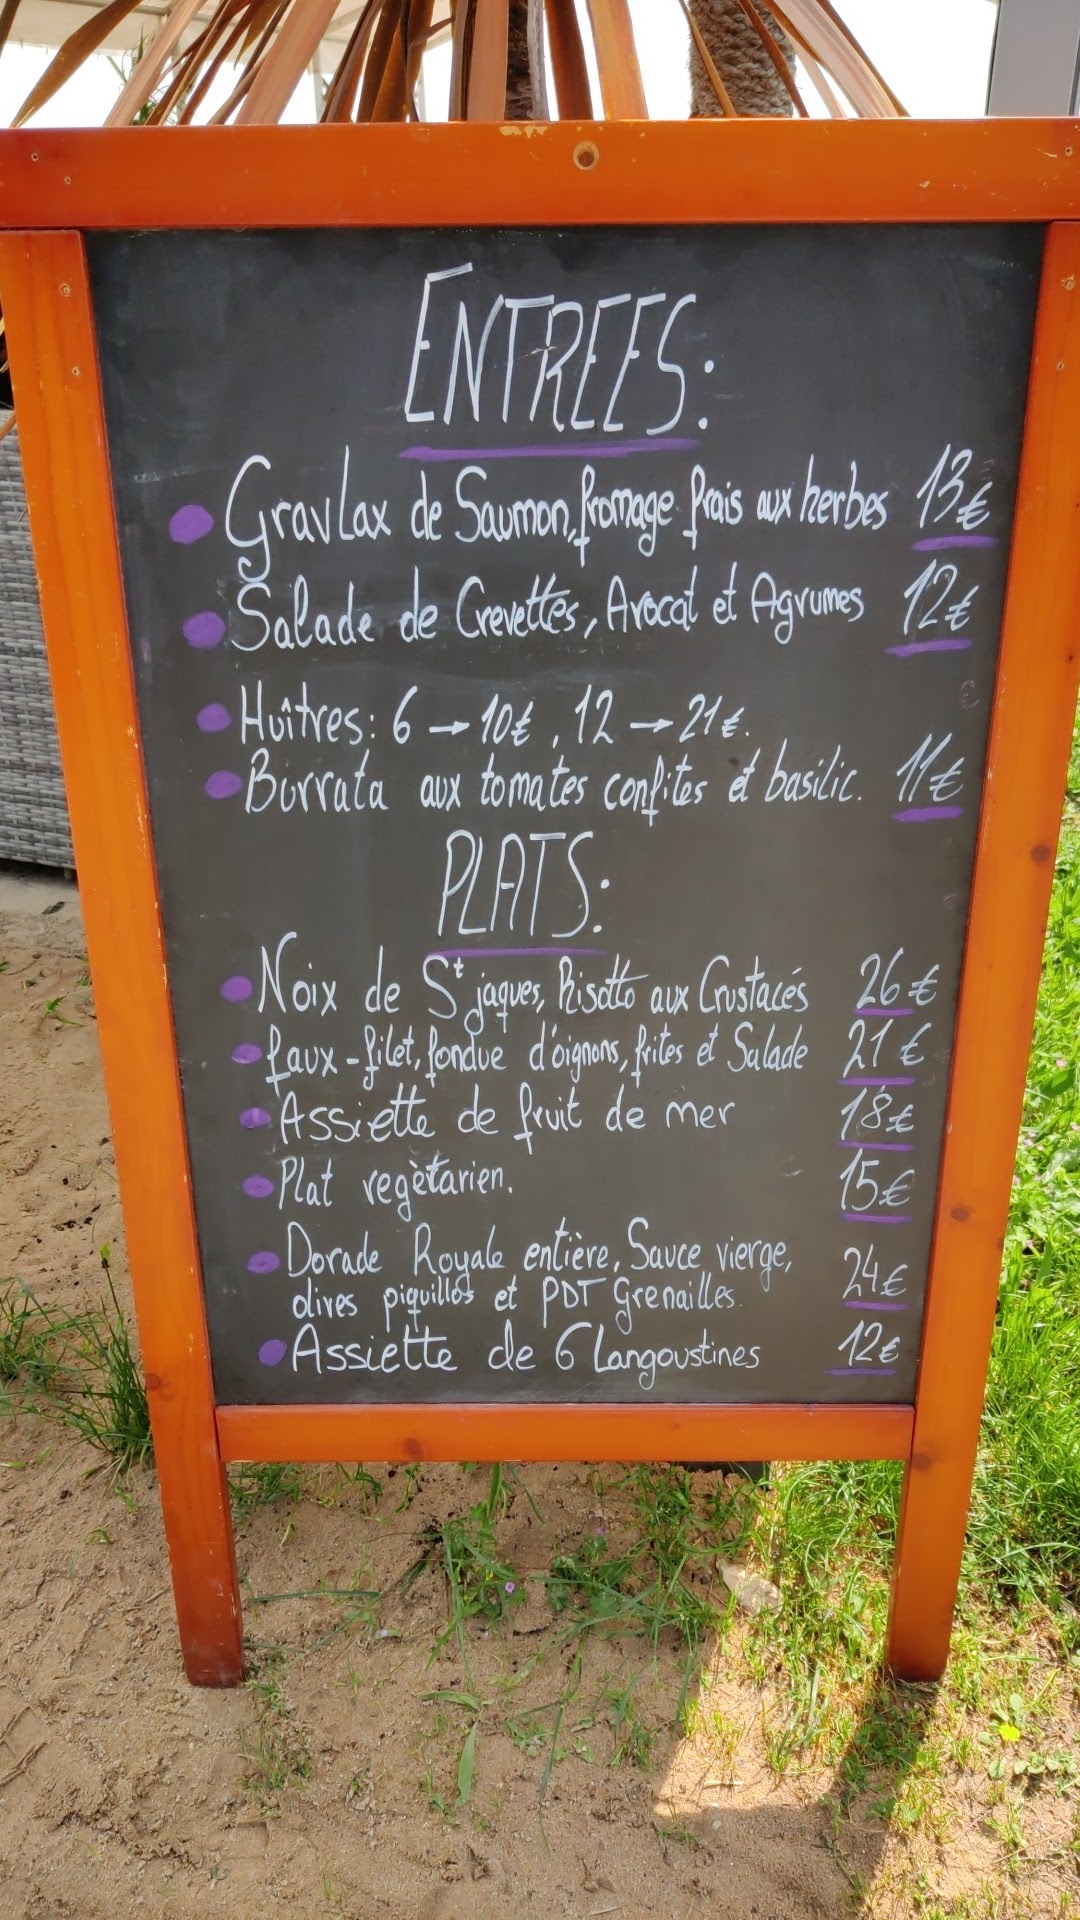 ENTREES:
Gravlax de Saumon, fromage frais aux herbes 13€
Salade de Crevettes, Avocat et Agrumes 12€
Huîtres: 6 → 10€, 12 → 21€.
Burrata aux tomates confites et basilic. 11€
PLATS:
Noix de St jaques, Risotto aux Crustacés 26€
faux-filet, fondue d'oignons, frites et Salade 21€
Assiette de fruit de mer 18€
Plat vegètarien. 15€
Dorade Royale entière, Sauce vierge,
olives piquillos et PDT Grenailles. 24€
Assiette de 6 Langoustines 12€